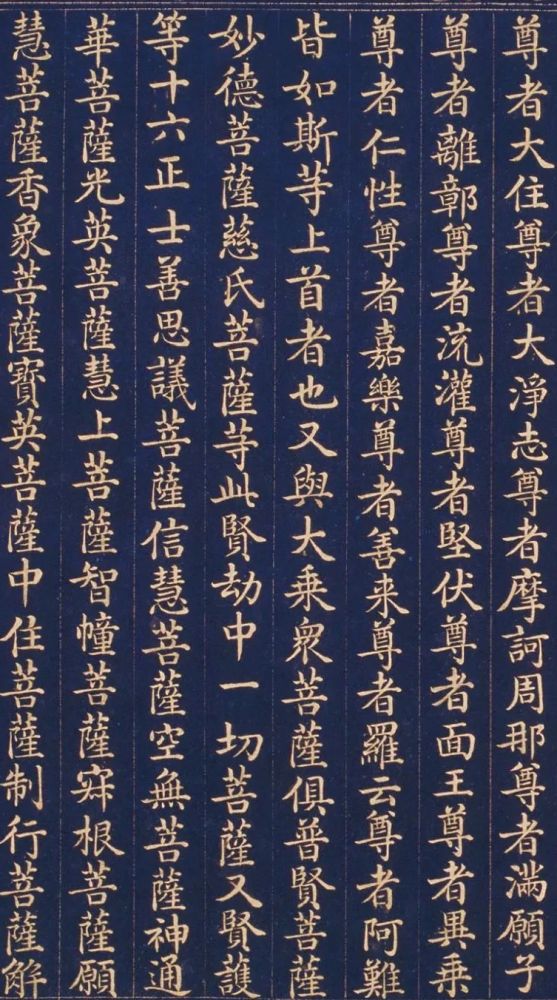 尊者大住尊者大淨志尊者摩訶周那尊者滿願子
尊者離鄣尊者流灌尊者堅伏尊者面王尊者異乗
尊者仁性尊者嘉樂尊者善来尊者羅云尊者阿難
皆如斯等上首者也又與大乘衆菩薩俱普賢菩薩
妙德菩薩慈氏菩薩等此賢劫中一切菩薩又賢護
等十六正士善思議菩薩信慧菩薩空無菩薩神通
華菩薩光英菩薩慧上菩薩智幢菩薩㝛根菩薩願
慧菩薩香象菩薩寶英菩薩中住菩薩制行菩薩解